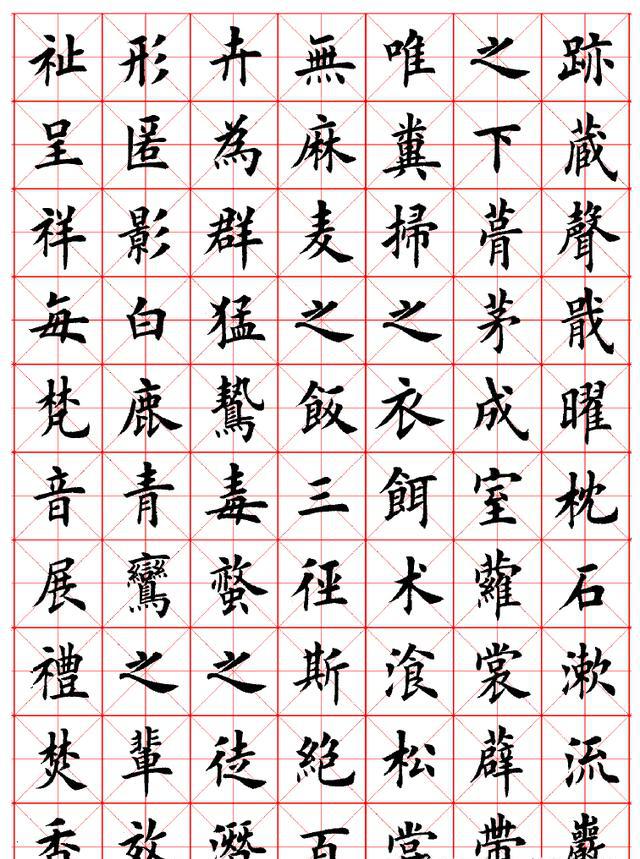 跡蔵聲戢曜枕石漱流巖
之下葺茅成室蘿裳薜帶
唯糞掃之衣餌术飡松嘗
無麻麦之飯三徑斯絕百
卉為群猛鷙毒螫之徒潛
形匿影白鹿青鸞之輩效
祉呈祥每梵音展禮焚香